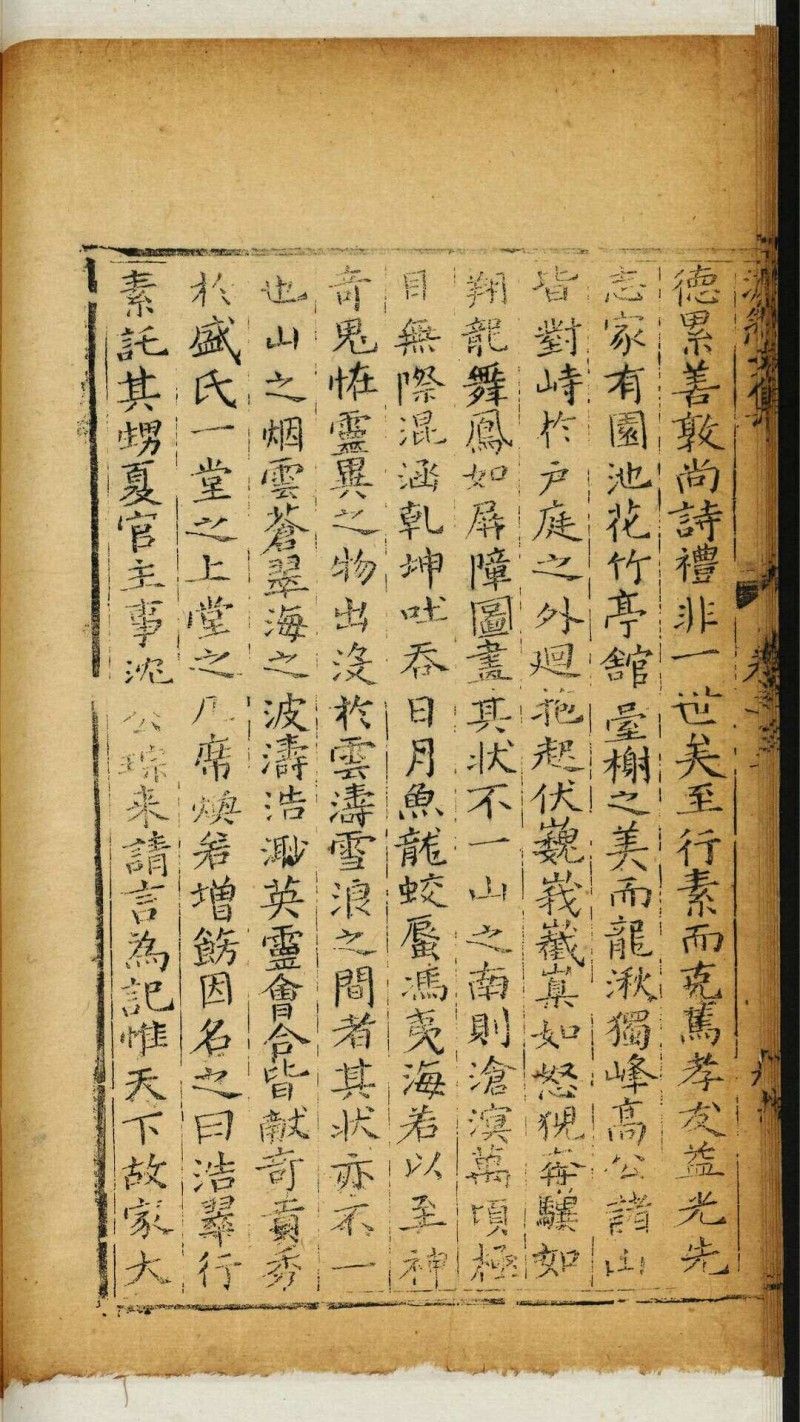 德累善敦尚詩禮非一世矣至行素而克篤孝友益光先
志家有園池花竹亭舘臺榭之美而龍湫獨峰高公諸山
皆對峙於戶庭之外迴拖起伏巍峩嶻嶪如怒猊奔驥如
翔龍舞鳳如屏障圖畫其状不一山之南則滄溟萬頃極
目無際混涵乹坤吐吞日月魚龍蛟蜃馮夷海若以至神
奇鬼恠靈異之物出沒於雲濤雪浪之間者其状亦不一
也山之烟雲蒼翠海之波濤浩渺英靈會合皆献奇貢秀
於盛氏一堂之上堂之几席煥若增餙因名之曰浩翠行
素託其甥夏官主事沈公琮来請言為記惟天下故家大